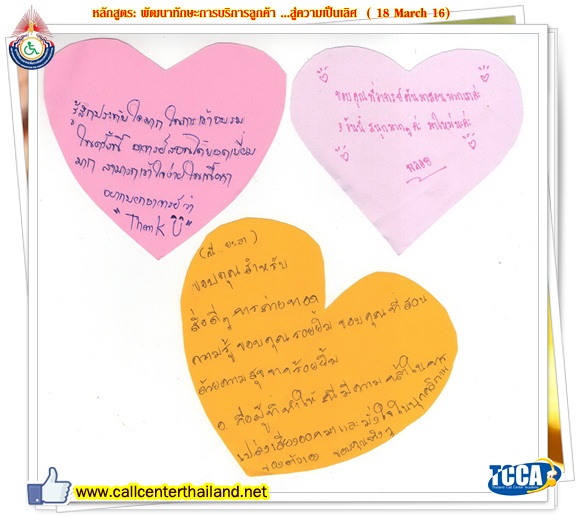 หลักสูตร: พัฒนาทักษะการบริการลูกค้า ...สู่ความเป็นเลิศ ( 18 March 16)
รู้สึกประทับใจมาก ในการเข้าอบรม
ในครั้งนี้ อาจารย์สอนได้ยอดเยี่ยม
มาก สามารถเข้าใจง่ายในเนื้อหา
อยากบอกอาจารย์ว่า
"Thank U"
ขอบคุณที่อาจารย์ มาสอนพวกเราค่ะ
วันนี้ สนุกมาก ค่ะ มาใหม่นะค่ะ
พลอย
ขอบคุณสำหรับ
สิ่งดีๆ การถ่ายทอด
ความรู้ ขอบคุณรอยยิ้ม ขอบคุณที่สอน
ด้วยความสุข จากรอยยิ้ม
อ. คือผู้ที่ทำให้ มีความกล้าในการ
เปล่งเสียงออกมา และมั่งใจในบุคลิกภาพ
ของตัวเอง ขอบคุณจริงๆ
www.callcenterthailand.net
TCCA